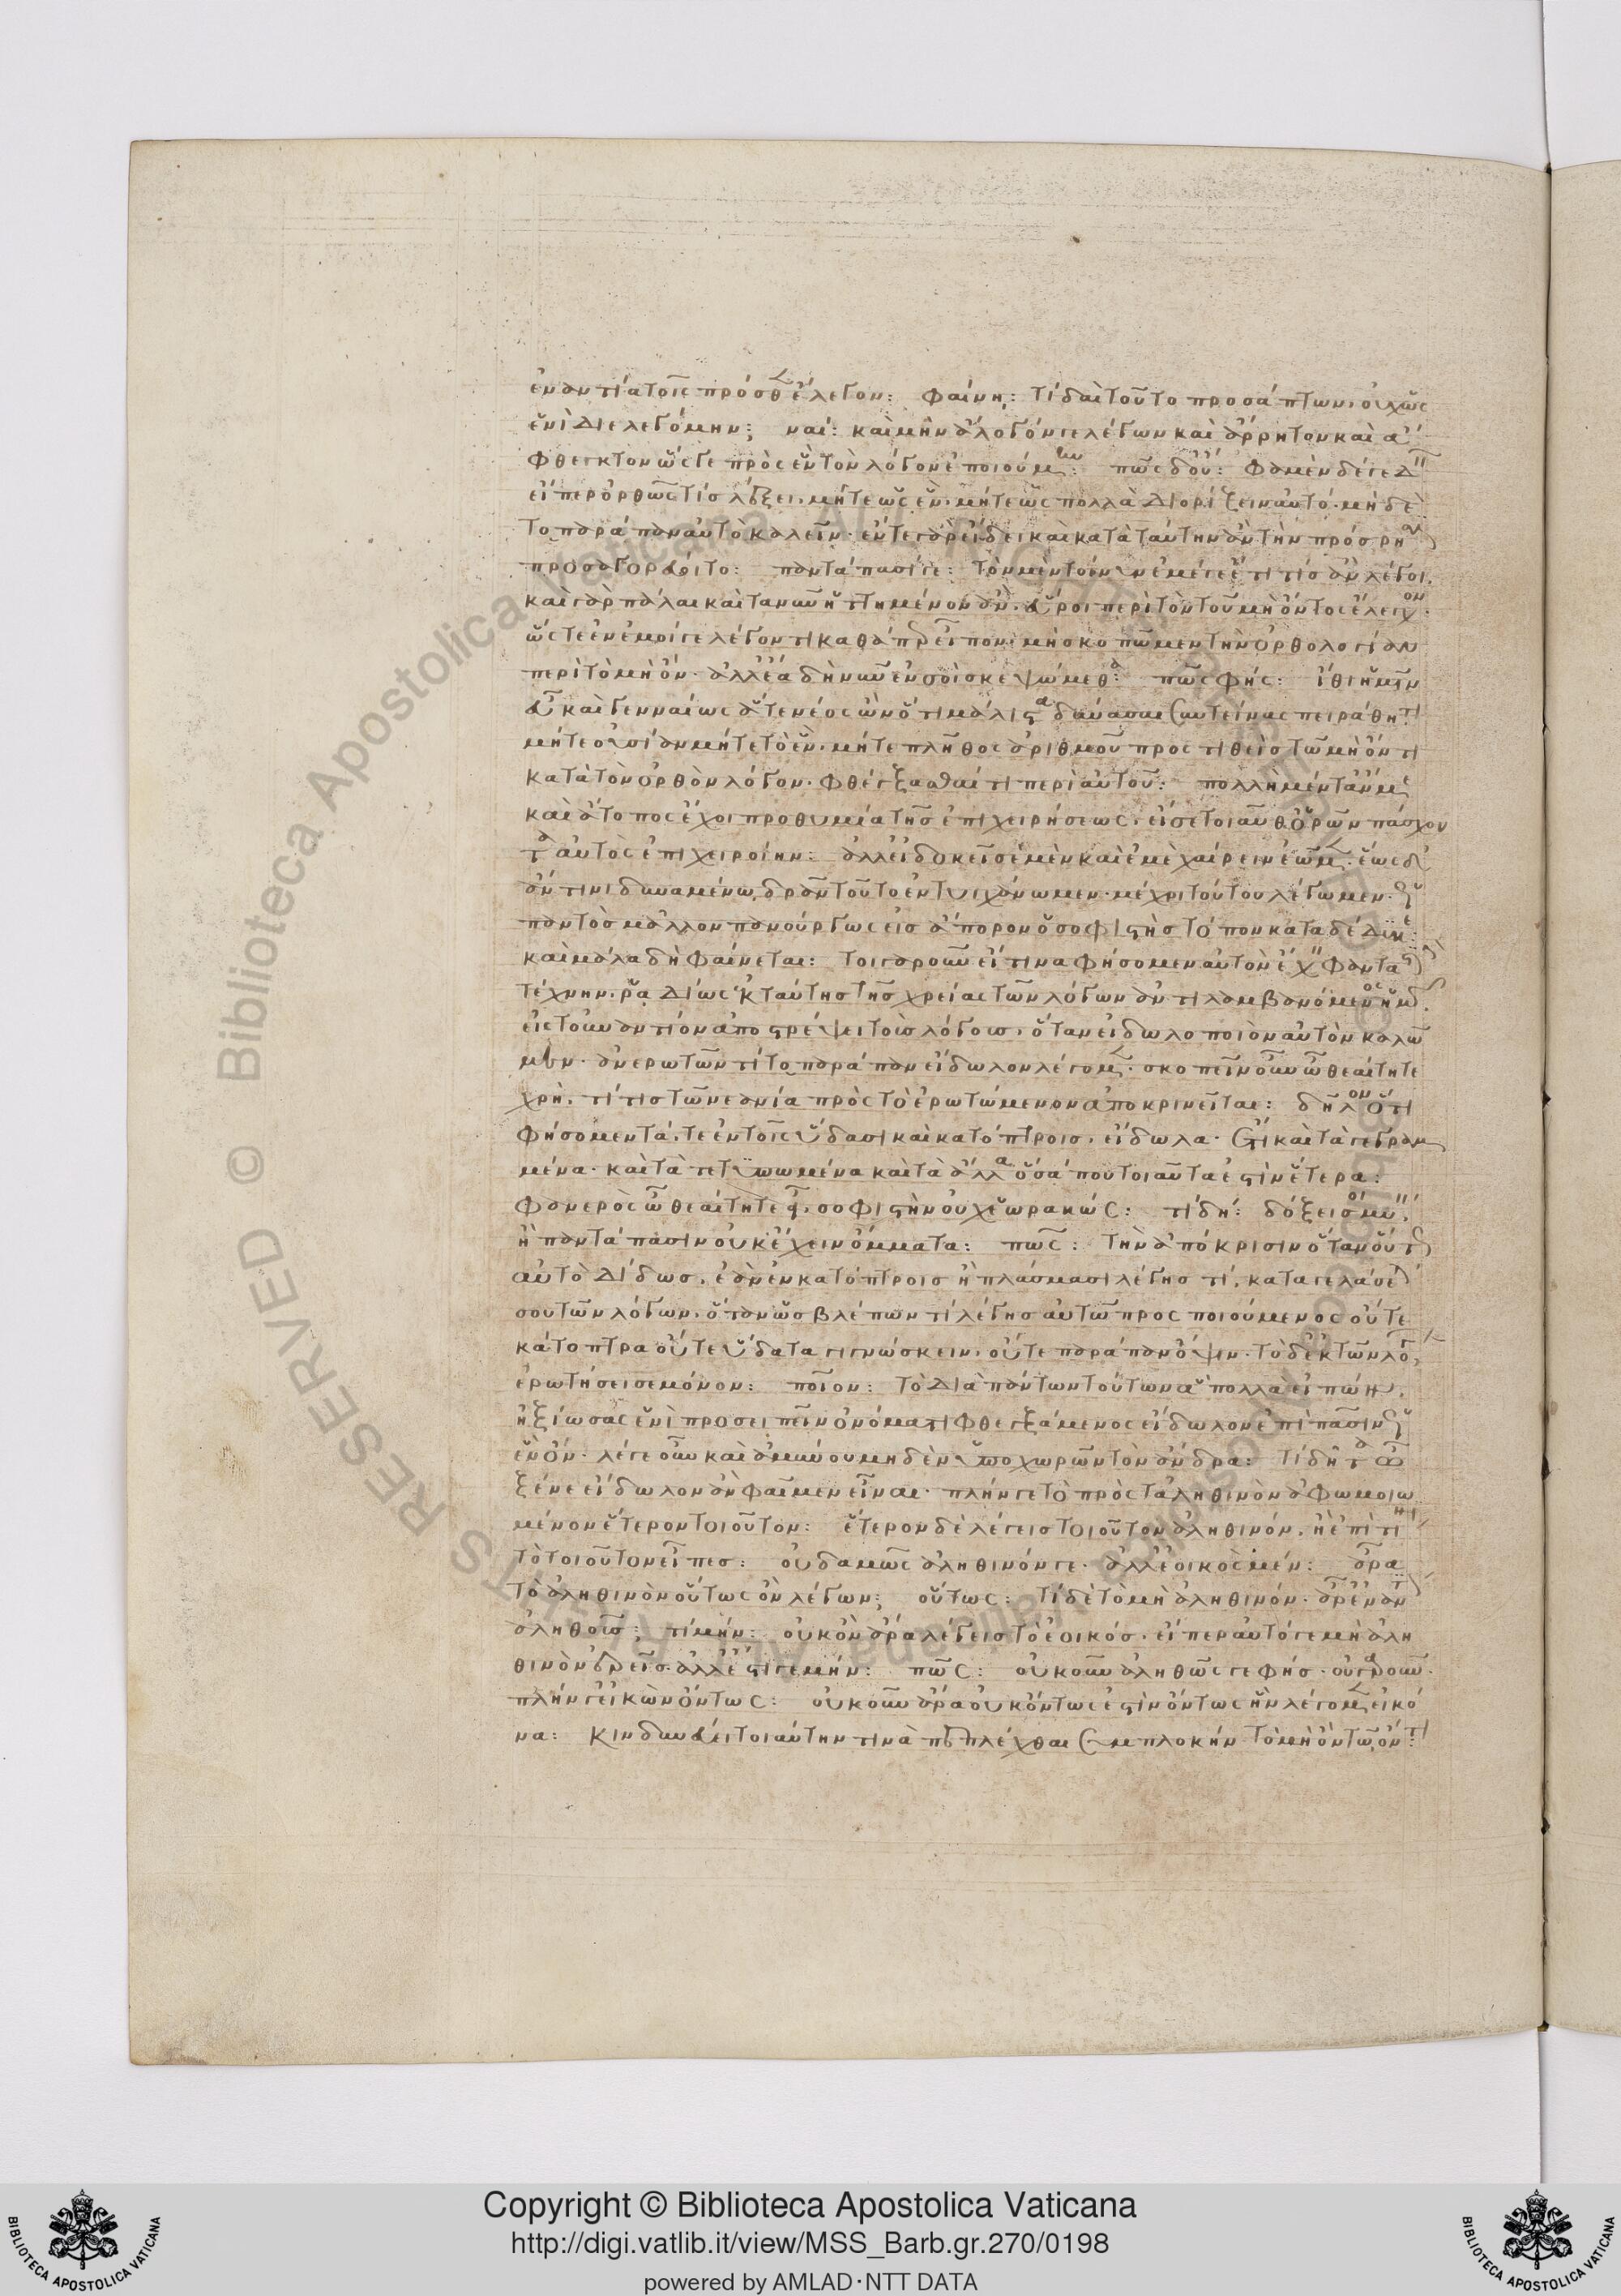 ἐναντία τοῖς πρόσθεν ἔλεγον: φαίνῃ: τί δαὶ τοῦτο προσάπτων, οὐχ ὡς
ἑνὶ διελεγόμην; ναί: καὶ μὴν ἄλογόν γε λέγων καὶ ἄρρητον καὶ ἄ
φθεγκτον ὥς γε πρὸς ἓν τὸν λόγον ἐποιούμην: πῶς δ' οὔ: φαμὲν δέ γε δεῖν
εἴπερ ὀρθῶς τίς λέξει, μήτε ὡς ἓν, μήτε ὡς πολλὰ διορίζειν αὐτό· μηδὲ
τὸ παράπαν αὐτὸ καλεῖν· ἑνί τε γὰρ εἴδει καὶ κατὰ ταύτην ἂν τὴν πρόσρησιν
προσαγορεύοιτο: παντάπασί γε: τὸν μὲν τοίνυν ἐμέ γε ἔτι τίς ἂν λέγοι,
καὶ γὰρ πάλαι καὶ τανῦν ἡττημένον ἂν εὕροι περὶ τὸν τοῦ μὴ ὄντος ἔλεγχον·
ὥστε ἐν ἐμοί γε λέγοντι καθάπερ εἶπον, μὴ σκοπῶμεν τὴν ὀρθολογίαν
περὶ τὸ μὴ ὄν· ἀλλ' ἔα δὴ νῦν ἐν σοὶ σκεψώμεθα: πῶς φής: ἴθι ἡμῖν
εὖ καὶ γενναίως ἅτε νέος ὢν ὅτι μάλιστα δύνασαι συντείνας πειράθητι
μήτε οὐσίαν μήτε τὸ ἓν, μήτε πλῆθος ἀριθμοῦ προστιθεὶς τῷ μὴ ὄντι
κατὰ τὸν ὀρθὸν λόγον, φθέγξασθαί τι περὶ αὐτοῦ: πολλὴ μέντἄν με
καὶ ἄτοπος ἔχοι προθυμία τῆς ἐπιχειρήσεως, εἰ σε τοιαῦθ' ὁρῶν πάσχοντα
αὐτὸς ἐπιχειροίην: ἀλλ' εἰ δοκεῖ σὲ μὲν καὶ ἐμὲ χαίρειν ἐῶμεν· ἕως δ'
ἄν τινι δυναμένῳ δρᾶν τοῦτο ἐντυγχάνωμεν, μέχρι τούτου λέγωμεν ὡς
παντὸς μᾶλλον πανούργως εἰς ἄπορον ὁ σοφιστὴς τόπον καταδέδυκε:
καὶ μάλα δὴ φαίνεται: τοιγαροῦν εἴ τινα φήσομεν αὐτὸν ἔχειν φανταστικὴν
τέχνην, ῥᾳδίως ἐκ ταύτης τῆς χρείας τῶν λόγων ἀντιλαμβανόμενος ἡμῶν
εἰς τοὐναντίον ἀποστρέψει τοῖς λόγοις, ὅταν εἰδωλοποιὸν αὐτὸν καλῶ
μεν· ἀνερωτῶν τί τὸ παράπαν εἴδωλον λέγομεν· σκοπεῖν οὖν ὦ θεαίτητε
χρὴ, τί τις τῷ νεανίᾳ πρὸς τὸ ἐρωτώμενον ἀποκρινεῖται: δῆλον ὅτι
φήσομεν τά, τε ἐν τοῖς ὕδασι καὶ κατόπτροις, εἴδωλα· ἔτι καὶ τὰ γεγραμ
μένα· καὶ τὰ τετυπωμένα καὶ τὰ ἄλλα ὅσά που τοιαῦτά ἐστιν ἕτερα:
φανερὸς ὦ θεαίτητε εἶ, σοφιστὴν οὐχ ἑωρακώς: τί δή: δόξει σοι μύειν,
ἢ παντάπασιν οὐκ ἔχειν ὄμματα: πῶς: τὴν ἀπόκρισιν ὅταν οὕτως
αὐτῷ διδῷς, ἐὰν ἐν κατόπτροις ἢ πλάσμασι λέγῃς τί, καταγελάσεται
σου τῶν λόγων, ὅταν ὡς βλέποντι λέγῃς αὐτῷ προσποιούμενος οὔτε
κάτοπτρα οὔτε ὕδατα γιγνώσκειν, οὔτε παράπαν ὄψιν· τὸ δ' ἐκ τῶν λόγων
ἐρωτήσει σε μόνον: ποῖον: τὸ διὰ πάντων τούτων ἃ πολλὰ εἰπὼν,
ἠξίωσας ἑνὶ προσειπεῖν ὀνόματι φθεγξάμενος εἴδωλον ἐπὶ πᾶσιν ὡς
ἓν ὄν· λέγε οὖν καὶ ἀμύνου μηδὲν ὑποχωρῶν τὸν ἄνδρα: τί δῆτα ὦ
ξένε εἴδωλον ἂν φαῖμεν εἶναι· πλήν γε τὸ πρὸς τἀληθινὸν ἀφωμοιω
μένον ἕτερον τοιοῦτον: ἕτερον δὲ λέγεις τοιοῦτον ἀληθινόν, ἢ ἐπὶ τίνι
τὸ τοιοῦτον εἶπες: οὐδαμῶς ἀληθινόν γε· ἀλλ' ἐοικὸς μέν: ἆρα
τὸ ἀληθινὸν οὕτως ὂν λέγων; οὕτως: τί δὲ τὸ μὴ ἀληθινόν· ἆρ' ἐναντίον
ἀληθοῖς; τί μήν: οὐκ ὂν ἄρα λέγεις τὸ ἐοικός, εἴπερ αὐτό γε μὴ ἀλη
θινὸν ἐρεῖς· ἀλλ' ἔστι γε μήν: πῶς: οὔκουν ἀληθῶς γε φής· οὐ γὰρ οὖν·
πλήν γ' εἰκὼν ὄντως: οὐκ ὂν ἄρα οὐκ ὄντως ἐστὶν ὄντως ἣν λέγομεν εἰκό
να: κινδυνεύει τοιαύτην τινὰ πεπλέχθαι συμπλοκὴν τὸ μὴ ὂν τῷ ὄντι: